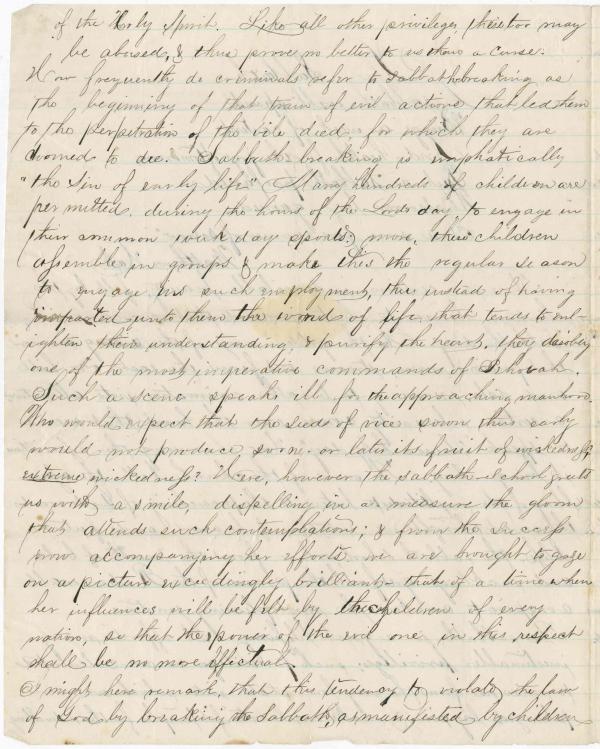 of the Holy Spirit. Like all other privileges these too may
be abused, & thus prove no better to us than a curse.
How frequently do criminals refer to Sabbath breaking as
the beginning of that train of evil actions, that led them
to the perpetration of the vile died, for which they are
doomed to die. Sabbath breaking is emphatically
"the Sin of early life" Many hundreds of children are
permitted, during the hours of the Lords day, to engage in
their common week day sports; more, these children
assemble in groups & make this the regular season
to engage in such employment, thus instead of having
imparted unto them the words of life, that tends to enl-
ighten their understanding, & purify the heart, they disobey
one of the most imperative commands of Jehovah.
Such a scene speaks ill for the approaching manhood.
Who would expect that the seeds of vice sown thus early
would not produce, sooner or later its fruit of wickedness,
extreme wickedness? Here, however the Sabbath-School greets
us with a smile, dispelling in a measure the gloom
that attends such contemplations; & from the success
now accompanying her efforts we are brought to gaze
on a picture exceedingly brilliant – that of a time when
her influences will be felt by the children of every
nation, so that the power of the evil one in this respect
shall be no more effectual.
I might here remark, that this tendency to violate the law
of God by breaking the Sabbath, as manifested by children